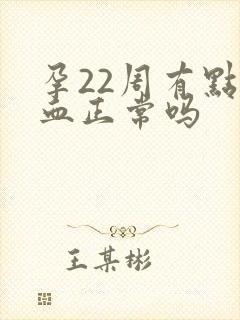 孕22周有點
血正常吗
王某彬